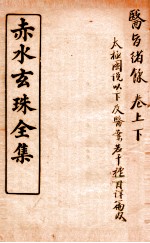 醫旨緒餘 卷上下
太極圖說以下及醫案若干種目詳篇次
赤水玄珠全集